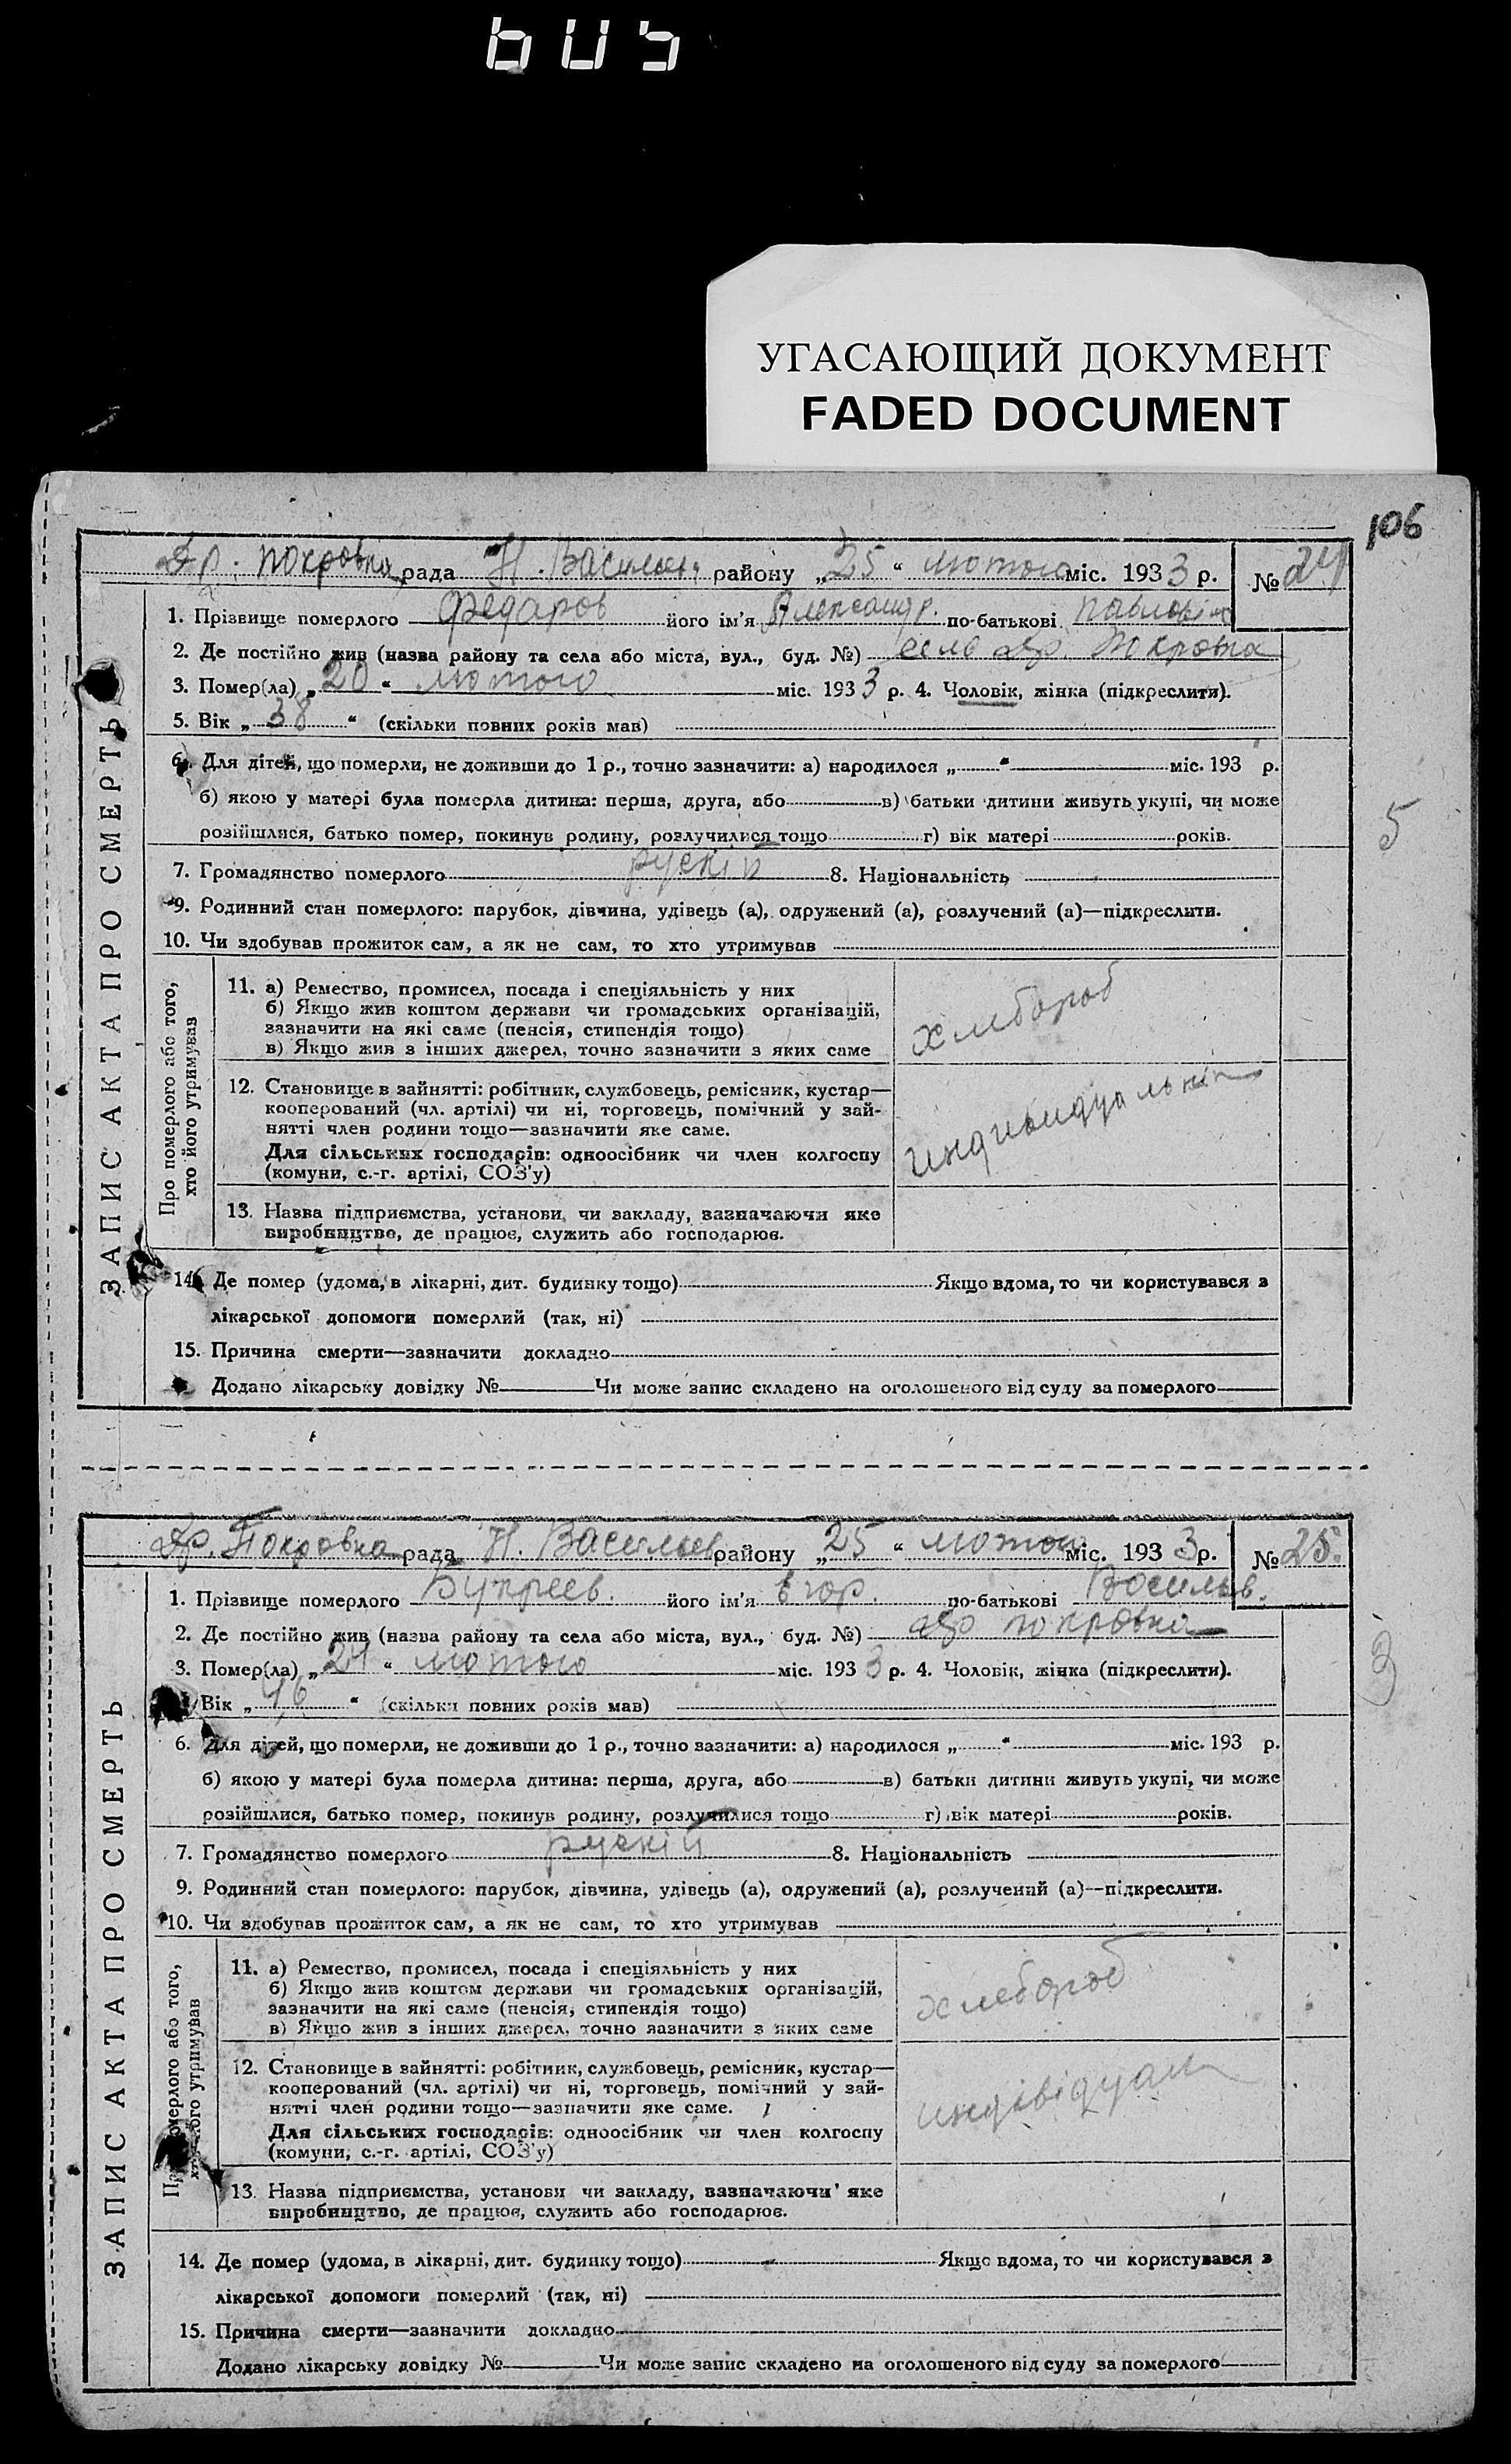 605
УГАСАЮЩИЙ ДОКУМЕНТ
FADED DOCUMENT
106
Др. Покровка рада Н. Васильев району „25“ лютого міс. 1933 р. № 24
1. Прізвище померлого Федаров його ім'я Александр. по-батькові Павловіч
2. Де постійно жив (назва району та села або міста, вул., буд. №) село др. Покровка
3. Помер(ла) „20“ лютого міс. 1933 р. 4. Чоловік, жінка (підкреслити).
5. Вік „38“ (скільки повних років мав)
6. Для дітей, що померли, не доживши до 1 р., точно зазначити: а) народилося „ “ міс. 193 р.
б) якою у матері була померла дитина: перша, друга, або в) батьки дитини живуть укупі, чи може
розійшлися, батько помер, покинув родину, розлучилися тощо г) вік матері років.
5
7. Громадянство померлого рускій 8. Національність
9. Родинний стан померлого: парубок, дівчина, удівець (а), одружений (а), розлучений (а)—підкреслити.
10. Чи здобував прожиток сам, а як не сам, то хто утримував
ЗАПИС АКТА ПРО СМЕРТЬ
Про померлого або того,
хто його утримував
11. а) Ремество, промисел, посада і спеціяльність у них
б) Якщо жив коштом держави чи громадських організацій,
зазначити на які саме (пенсія, стипендія тощо)
в) Якщо жив з інших джерел, точно зазначити з яких саме
хлебороб
12. Становище в зайнятті: робітник, службовець, ремісник, кустар—
кооперований (чл. артілі) чи ні, торговець, помічний у зай-
нятті член родини тощо—зазначити яке саме.
Для сільських господарів: одноосібник чи член колгоспу
(комуни, с.-г. артілі, СОЗ'у)
13. Назва підприємства, установи чи закладу, зазначаючи яке
виробництво, де працює, служить або господарює.
14. Де помер (удома, в лікарні, дит. будинку тощо) Якщо вдома, то чи користувався з
лікарської допомоги померлий (так, ні)
15. Причина смерти—зазначити докладно
Додано лікарську довідку № Чи може запис складено на оголошеного від суду за померлого
Др. Покровка рада Н. Васильев району „25“ лютого міс. 1933 р. № 25.
1. Прізвище померлого Бупреев. його ім'я Егор. по-батькові Васильев.
2. Де постійно жив (назва району та села або міста, вул., буд. №) др покровка
3. Помер(ла) „24“ лютого міс. 1933 р. 4. Чоловік, жінка (підкреслити).
3
Вік „46“ (скільки повних років мав)
6. Для дітей, що померли, не доживши до 1 р., точно зазначити: а) народилося „ “ міс. 193 р.
б) якою у матері була померла дитина: перша, друга, або в) батьки дитини живуть укупі, чи може
розійшлися, батько помер, покинув родину, розлучилися тощо г) вік матері років.
7. Громадянство померлого рускій 8. Національність
9. Родинний стан померлого: парубок, дівчина, удівець (а), одружений (а), розлучений (а)—підкреслити.
10. Чи здобував прожиток сам, а як не сам, то хто утримував
ЗАПИС АКТА ПРО СМЕРТЬ
або того,
утримував
11. а) Ремество, промисел, посада і спеціяльність у них
б) Якщо жив коштом держави чи громадських організацій,
зазначити на які саме (пенсія, стипендія тощо)
в) Якщо жив з інших джерел, точно зазначити з яких саме
хлебороб
12. Становище в зайнятті: робітник, службовець, ремісник, кустар—
кооперований (чл. артілі) чи ні, торговець, помічний у зай-
нятті член родини тощо—зазначити яке саме.
Для сільських господарів: одноосібник чи член колгоспу
(комуни, с.-г. артілі, СОЗ'у)
индівідуал
13. Назва підприємства, установи чи закладу, зазначаючи яке
виробництво, де працює, служить або господарює.
14. Де помер (удома, в лікарні, дит. будинку тощо) Якщо вдома, то чи користувався з
лікарської допомоги померлий (так, ні)
15. Причина смерти—зазначити докладно
Додано лікарську довідку № Чи може запис складено на оголошеного від суду за померлого